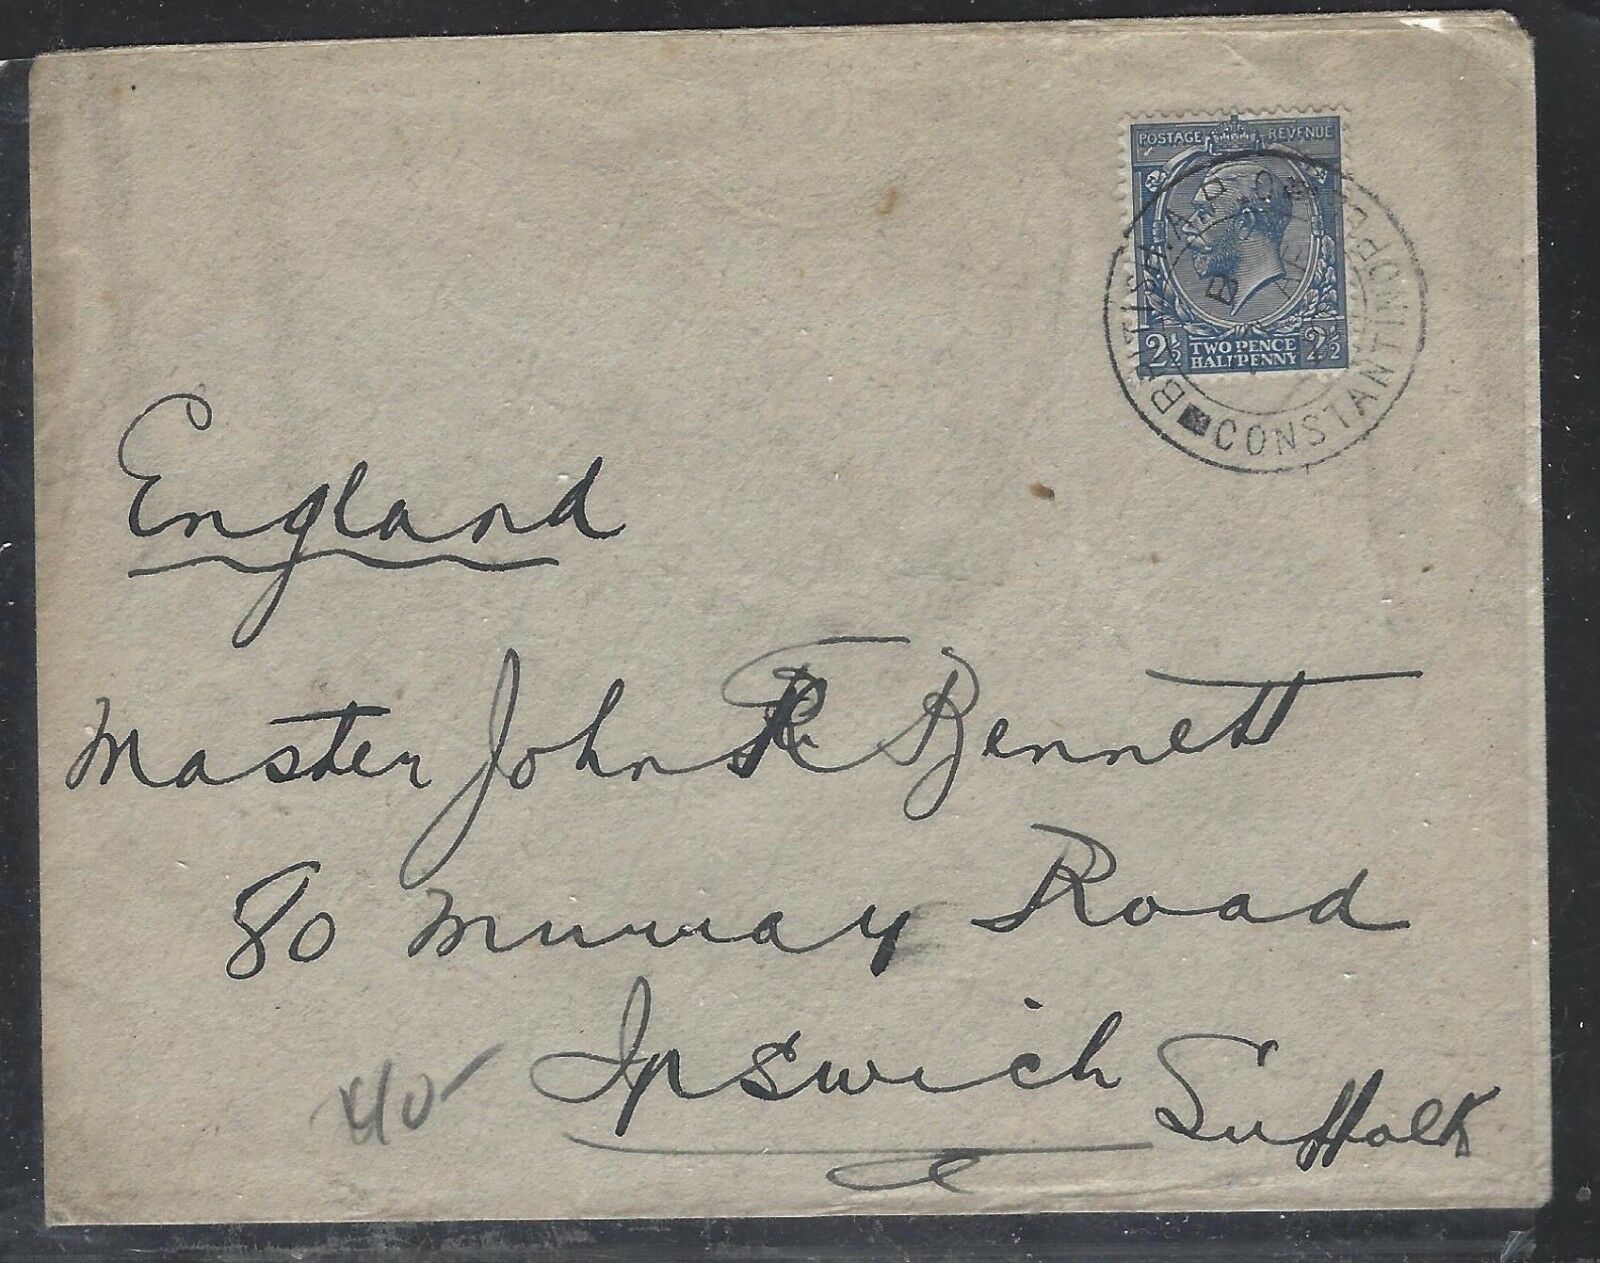 POSTAGE REVENUE
2½ TWO PENCE HALFPENNY 2½
BRITISH A.P.O. CONSTANTINOPLE
B
England
Master John R Bennett
80 Murray Road
Ipswich
Suffolk